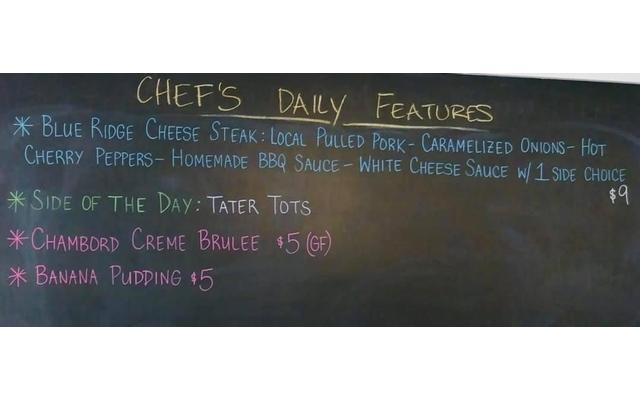 CHEF'S DAILY FEATURES
* BLUE RIDGE CHEESE STEAK: LOCAL PULLED PORK - CARAMELIZED ONIONS - HOT
CHERRY PEPPERS - HOMEMADE BBQ SAUCE - WHITE CHEESE SAUCE W/ 1 SIDE CHOICE
$9
* SIDE OF THE DAY: TATER TOTS
* CHAMBORD CREME BRULEE $5 (GF)
* BANANA PUDDING $5